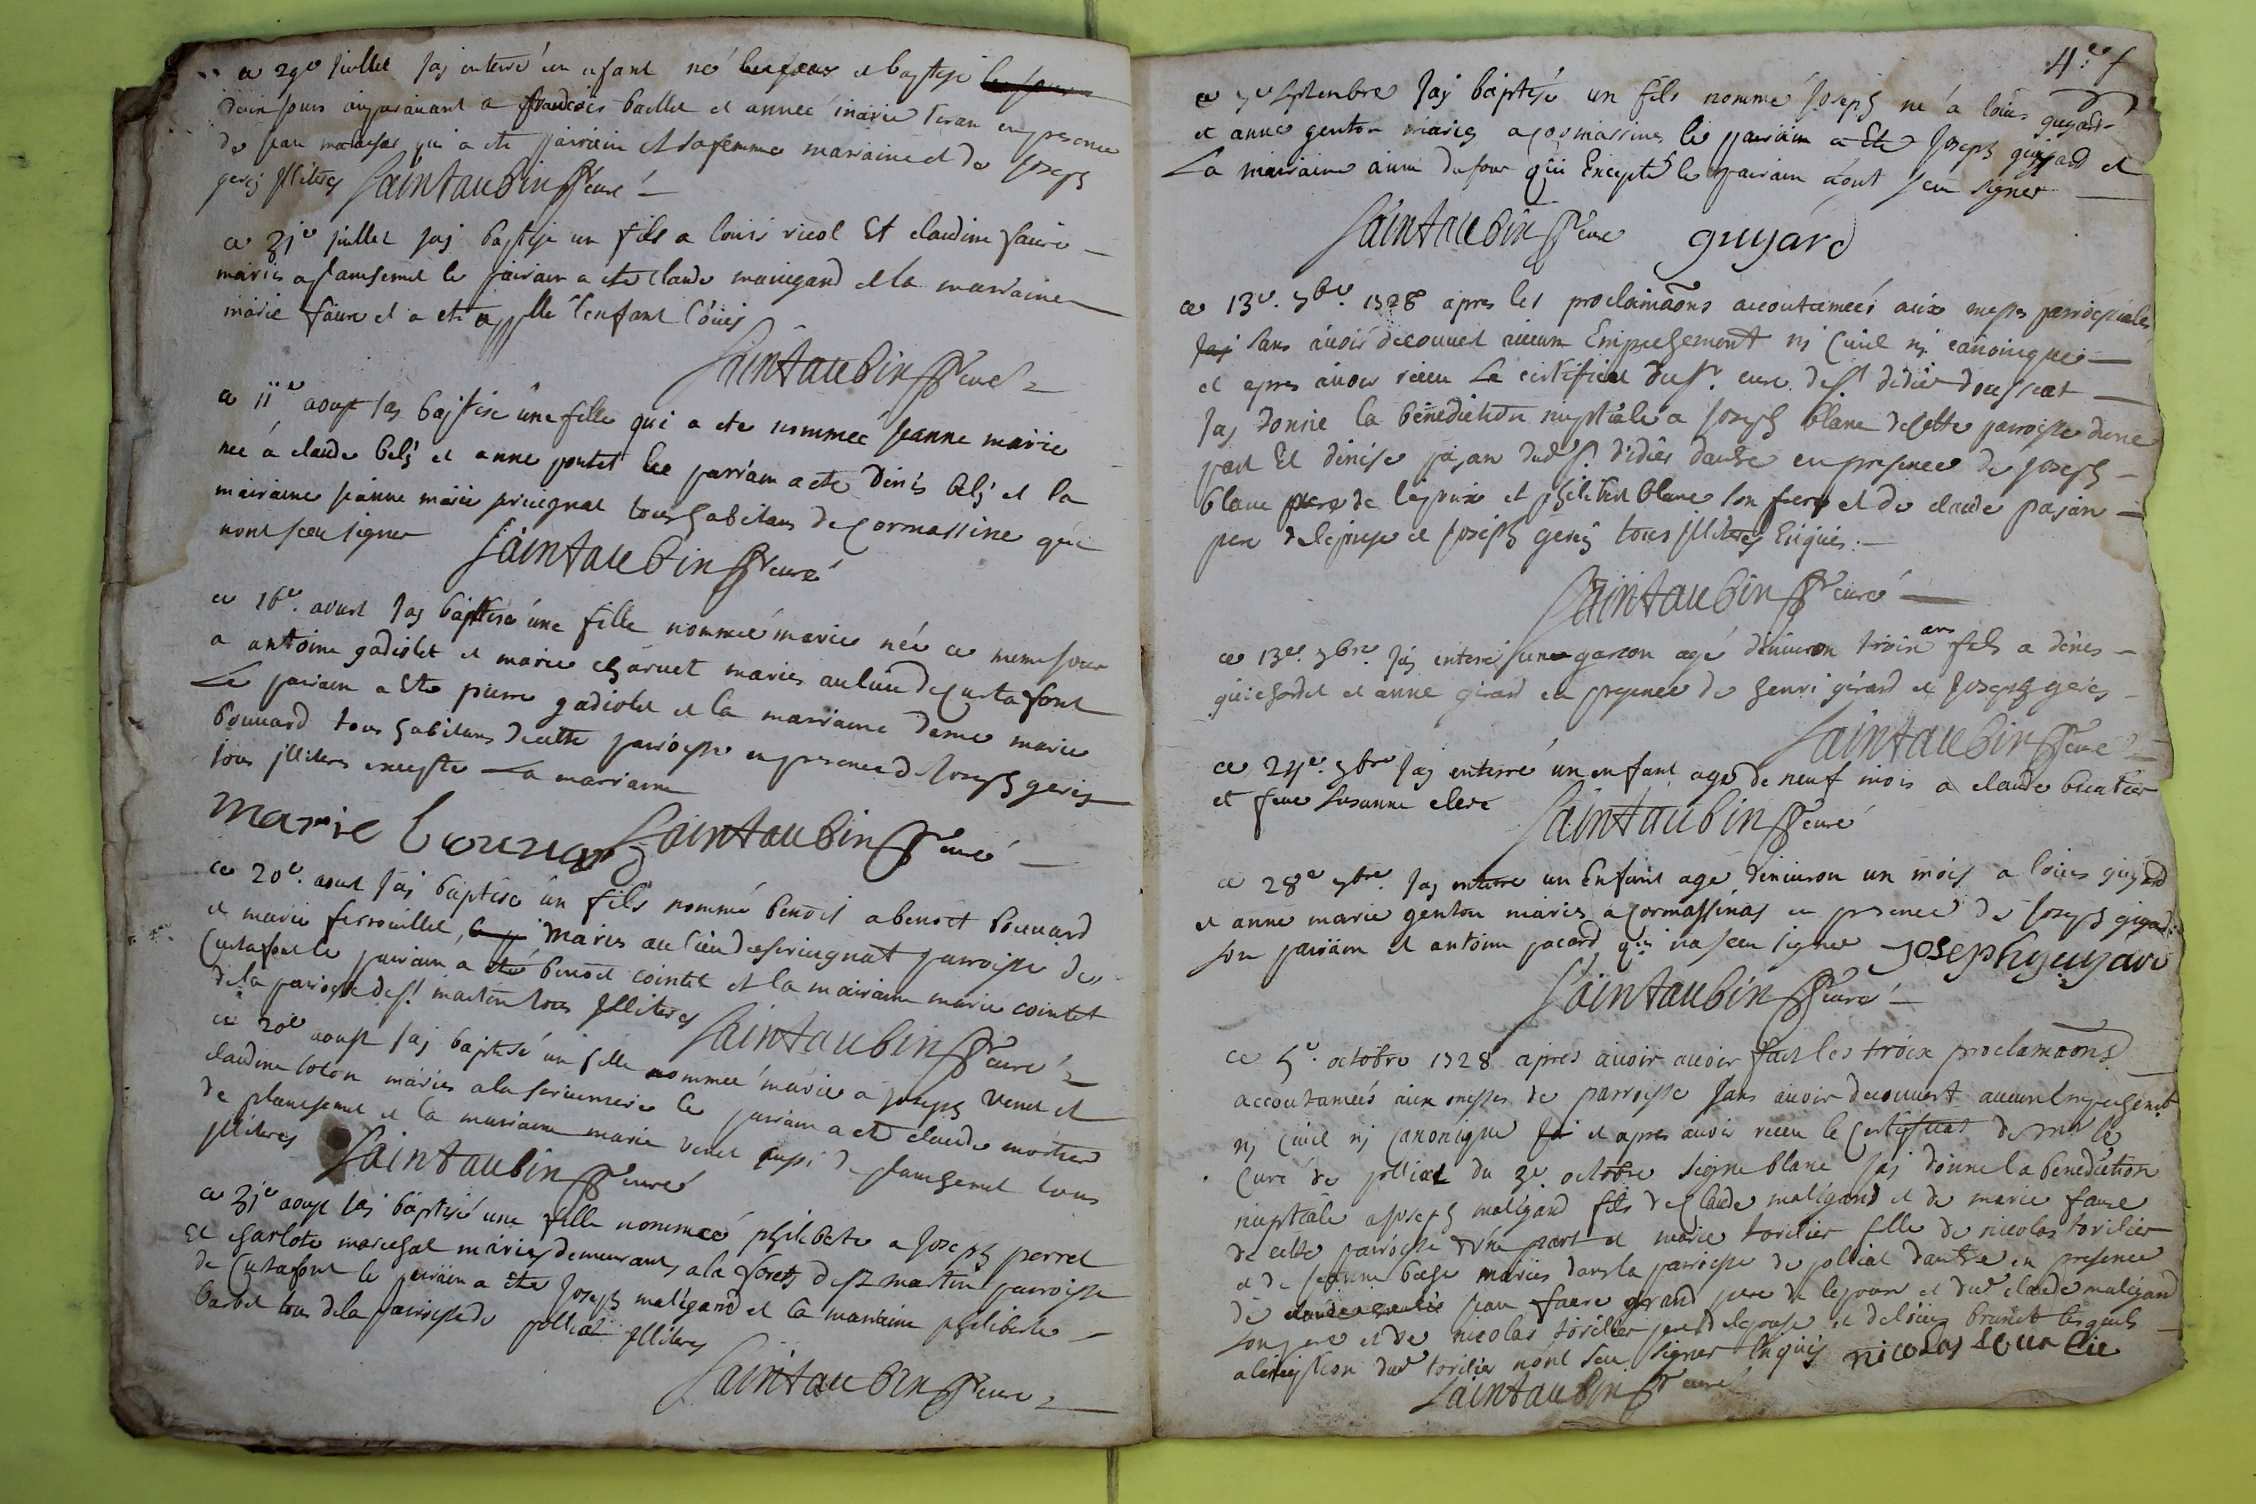 ce 29e juillet jaj enterré un enfant né et baptisé
deux jours auparavant a francois baillet et annee marie en presence
de jean qui a ete parrain et sa femme marraine et de joseph
geres jlliteres Saintaubin curé
ce 31e juillet jaj baptise un fils a louis vicol Et claudine faure
mariés a planchemel le pairain a ete claude maingand et la marraine
marie faure et a ete appellé l'enfant loúis
Saintaubin curé
ce 11e aoust jaj baptisé une fille qui a ete nommeé jeanne marie
neé à claude bely et anne pontet le parrain a ete Denis bely et la
mairaine jeanne marie tous habitans de Cormassine qui
nont sceu signer Saintaubin curé
ce 16e. aoust jaj baptisé une fille nommeé marie née ce meme jour
a antoine gadiolet et marie charvet mariés au lieu de Curtafont
Le pairain a Ete pierre gadiolet et la marraine Dame marie
bouvard tous habitans de cette parroisse en presence de Joseph geres
tous jlliteres excepte La marraine
marie bouvard Saintaubin curé
ce 20e. aoust jaj baptisé un fils nommé benoit a benoit bouvard
et marie ferrouillet, mariés au lieu de parroisse de
Curtafont le pairain a eté benoit cointet et la mairaine marie cointet
de la parroisse de st martin tous jlliteres
Saintaubin curé
ce 20e aoust jaj baptisé un fille nommeé marie a joseph venet et
claudine mariés a la le pairain a ete claude mortier
de planchemel et la marraine marie venet aussi de planchemel tous
jlliteres Saintaubin curé
ce 31e aoust jaj baptisé une fille nommeé philiberte a joseph perret
Et charlote marechal mariés demeurans a la forets de st martin parroisse
de Curtafont le pairain a éte joseph maligand et la marraine philiberte
barbet tous de la parroisse de polliat jlliteres
Saintaubin curé
4e f
ce 7e septembre jaj baptisé un fils nommé joseph né à loúis guyard
et anne genton mariés a Cormassines le pairain a Ete joseph guyard et
La mairaine anne dufour qui Excepté le pairain n'ont sceu signer
Saintaubin curé guyard
ce 13e. 7bre. 1728 apres les proclamaõns accoutumeés aux messes parroissiales
jaj sans avoir decouvert aucun Empechement nj Civil nj canonique
et apres avoir receu Le certificat du sr. curé de st didier doussiat
jaj donné la benediction nuptiale a joseph blanc de cette parroisse d'une
part Et denise pajan dud st. didier dautre en presence de joseph
blanc pere de l'epoux et philibert blanc son frere et de claude pajan
pere de l'epouse et joseph geres tous jlliteres Enquis.
Saintaubin curé
ce 13e. 7bre. jaj enterré un garcon agé d'environ trois ans fils a denis
guichardet et anne girard en presence de henri girard et joseph geres
Saintaubin curé
ce 24e. 7bre jaj enterré un enfant agé de neuf mois a claude
et feue susanne clerc Saintaubin curé
ce 28e 7bre. jaj enterré un Enfant agé d'environ un mois a loúis guyard
et anne marie genton mariés a Cormassinas en presence de joseph
son pairain et antoine jacard qui na sceu signer joseph guyard
Saintaubin curé
ce 5e. octobre 1728 apres avoir avoir fait les trois proclamaõns
accoutumeés aux messes de parroisse sans avoir decouvert aucun Empechemt
nj Civil nj Canonique jaj et apres avoir receu le Certificat de mr le
Curé de polliat du 3e octobre signé blanc jaj donné la benediction
nuptiale a joseph maligand fils de Claude maligand et de marie faure
de cette parroisse d'une part et marie torilier fille de nicolas torilier
et de jeanne mariés dans la parroisse de polliat dautre en presence
de jean faure grand pere de lepoux et dud claude maligand
son pere et de nicolas torilier pere de lepouse et de loúis brunet lesquels
a l'exeption dud torilier nont sceu signer Enquis nicolas
Saintaubin curé